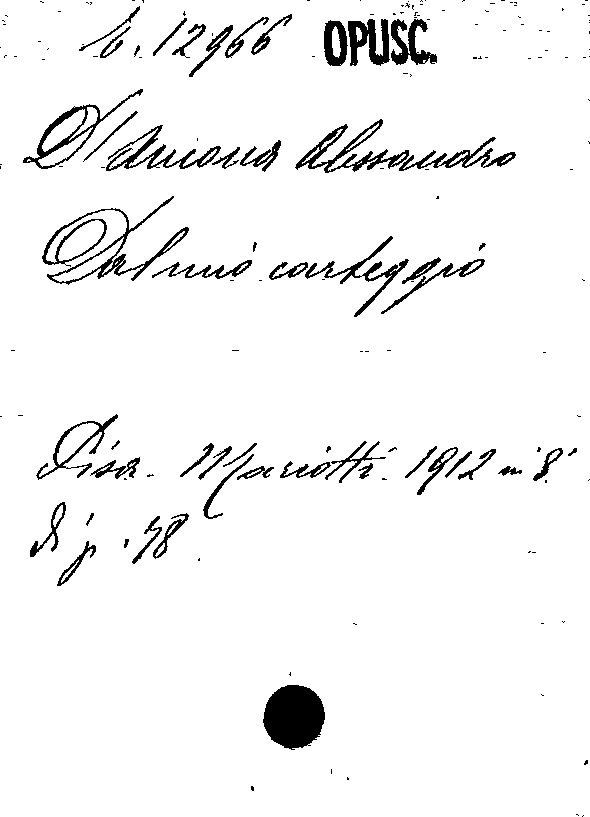 E. 12966 OPUSC.
D'Ancona Alessandro
Dal mio carteggio
Pisa. Mariotti. 1912 in 8.°
di p. 78